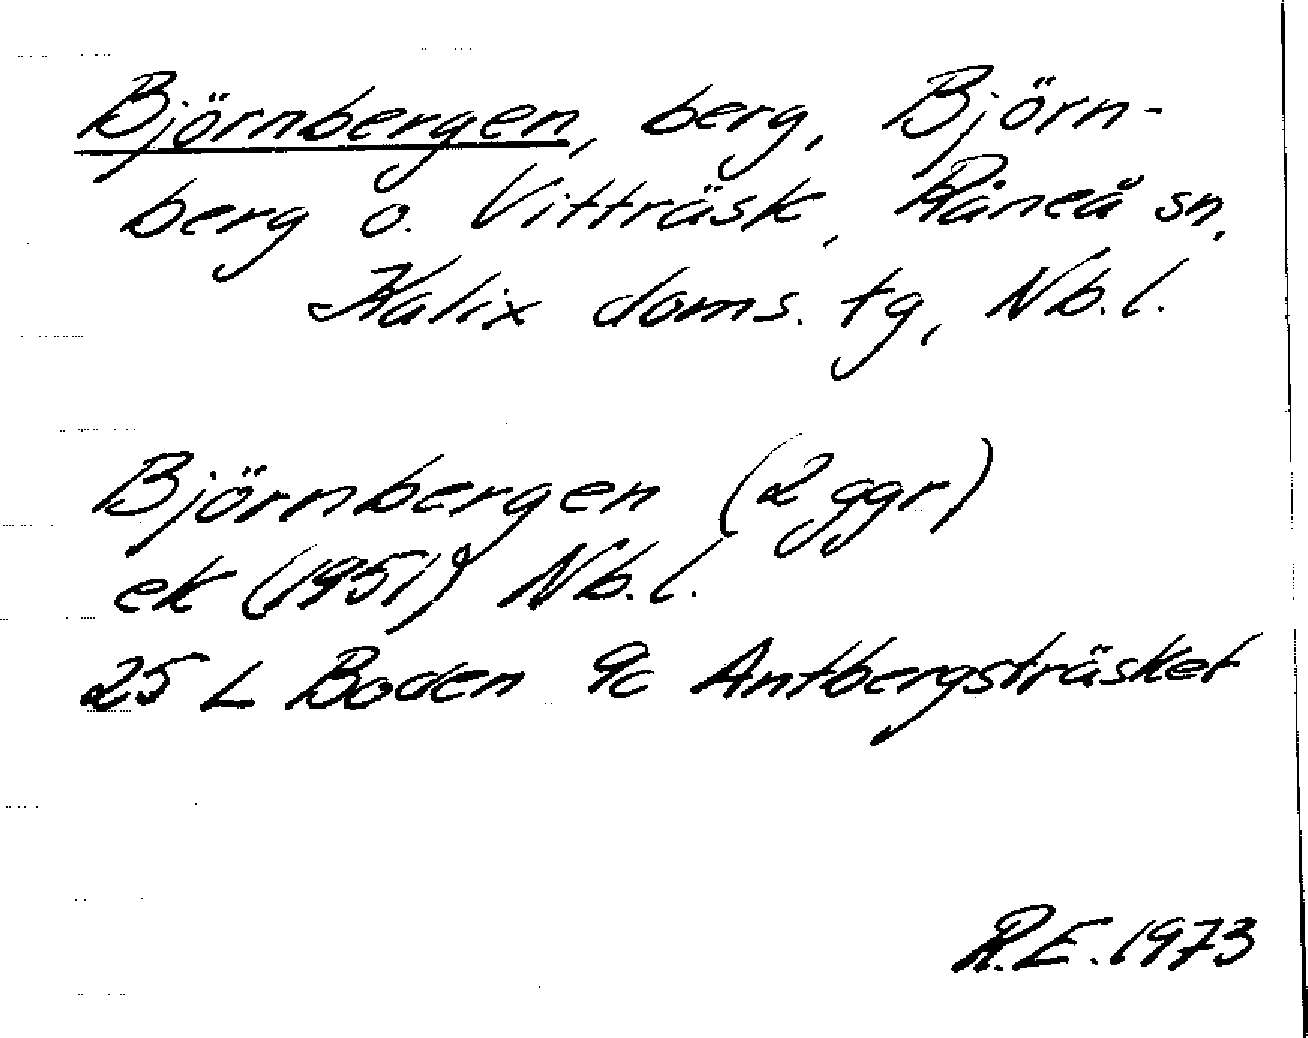 Björnbergen, berg, Björn-
berg o. Vitträsk, Råneå sn,
Kalix doms. tg, Nb.l.
Björnbergen (2 ggr)
ek (1951) Nb.l.
25 L Boden 9c Antbergsträsket
R.E. 1973